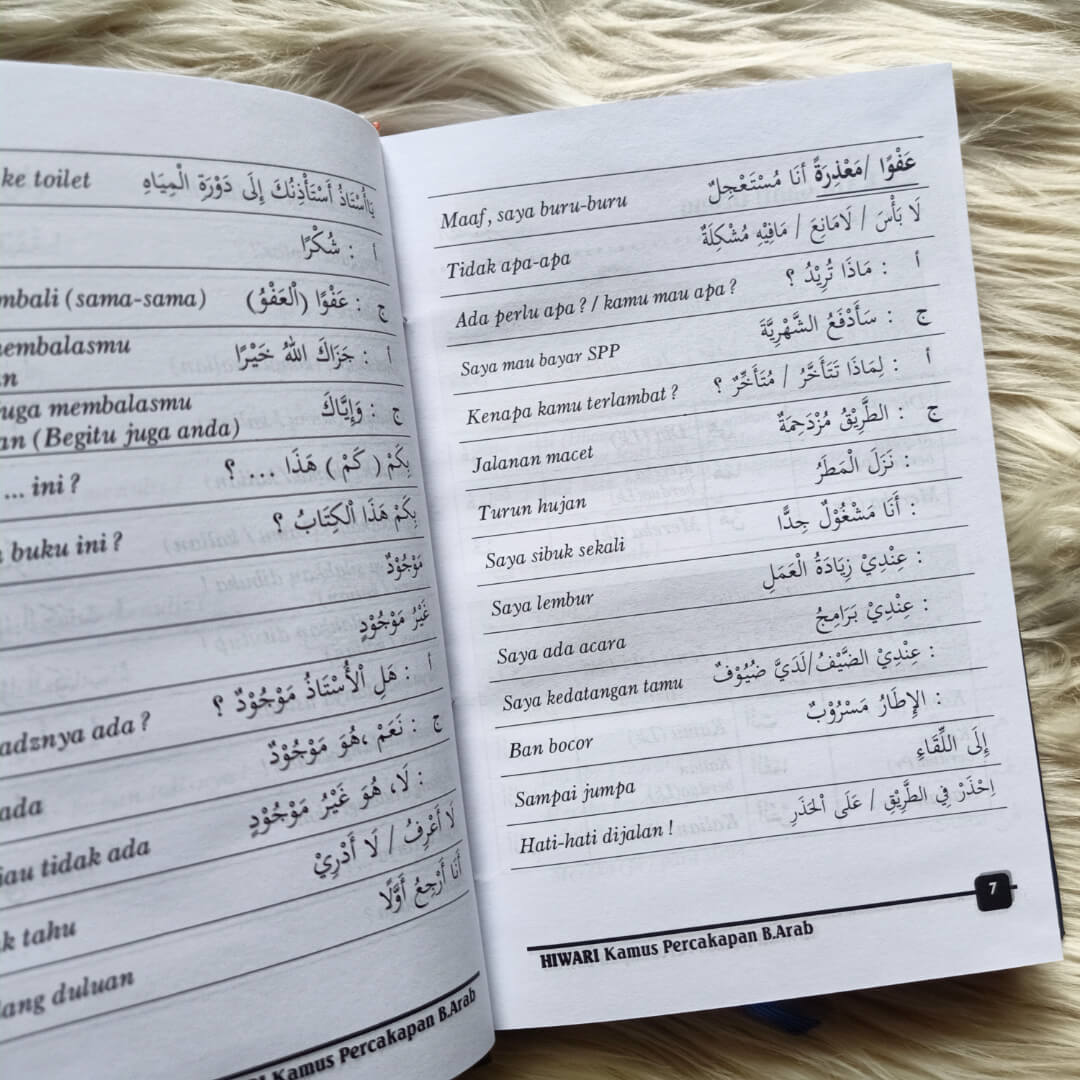 ke toilet يَاأُسْتَاذُ أَسْتَأْذِنُكَ إِلَى دَوْرَةِ الْمِيَاهِ
أ : شُكْرًا
mbali (sama-sama) ج : عَفْوًا (الْعَفْوُ)
membalasmu أ : جَزَاكَ اللهُ خَيْرًا
an
juga membalasmu ج : وَإِيَّاكَ
an (Begitu juga anda)
... ini ? بِكَمْ ( كَمْ ) هَذَا .... ؟
buku ini ? بِكَمْ هَذَا الْكِتَابُ ؟
مَوْجُوْدٌ
غَيْرُ مَوْجُوْدٍ
adznya ada ? أ : هَلِ الْأُسْتَاذُ مَوْجُوْدٌ ؟
ada ج : نَعَمْ ،هُوَ مَوْجُوْدٌ
iau tidak ada : لَا، هُوَ غَيْرُ مَوْجُوْدٍ
k tahu لَا أَعْرِفُ / لَا أَدْرِيْ
ang duluan أَنَا أَرْجِعُ أَوَّلًا
RI Kamus Percakapan B.Arab
Maaf, saya buru-buru عَفْوًا /مَعْذِرَةً أَنَا مُسْتَعْجِلٌ
Tidak apa-apa لَا بَأْسَ / لَامَانِعَ / مَافِيْهِ مُشْكِلَةٌ
Ada perlu apa ? / kamu mau apa ? أ : مَاذَا تُرِيْدُ ؟
Saya mau bayar SPP ج : سَأَدْفَعُ الشَّهْرِيَّةَ
Kenapa kamu terlambat ? أ : لِمَاذَا تَتَأَخَّرُ / مُتَأَخِّرٌ ؟
Jalanan macet ج : الطَّرِيْقُ مُزْدَحِمَةٌ
Turun hujan : نَزَلَ الْمَطَرُ
Saya sibuk sekali : أَنَا مَشْغُوْلٌ جِدًّا
Saya lembur : عِنْدِيْ زِيَادَةُ الْعَمَلِ
Saya ada acara : عِنْدِيْ بَرَامِجُ
Saya kedatangan tamu : عِنْدِيْ الضَّيْفُ/لَدَيَّ ضُيُوْفٌ
Ban bocor : الإِطَارُ مَسْرُوْبٌ
Sampai jumpa إِلَى اللِّقَاءِ
Hati-hati dijalan ! اِحْذَرْ فِي الطَّرِيْقِ / عَلَى الْحَذَرِ
7
HIWARI Kamus Percakapan B.Arab